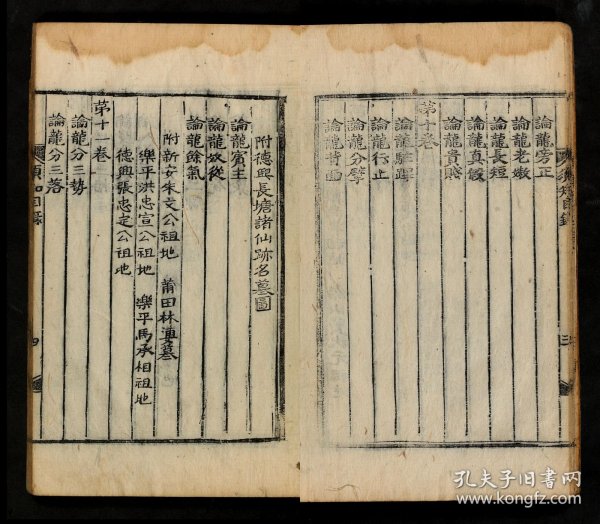 論龍旁正
論龍老嫩
論龍長短
論龍真假
論龍貴賤
第十卷
論龍駐蹕
論龍行止
論龍分擘
論龍背面
三
附德興長塘諸仙跡名墓圖
論龍賓主
論龍奴從
論龍餘氣
附新安朱文公祖地 莆田林墓
樂平洪忠宣公祖地 樂平馬丞相祖地
德興張忠定公祖地
第十卷
論龍分三勢
論龍分三落
須知目錄
四
孔夫子旧书网
www.kongfz.com